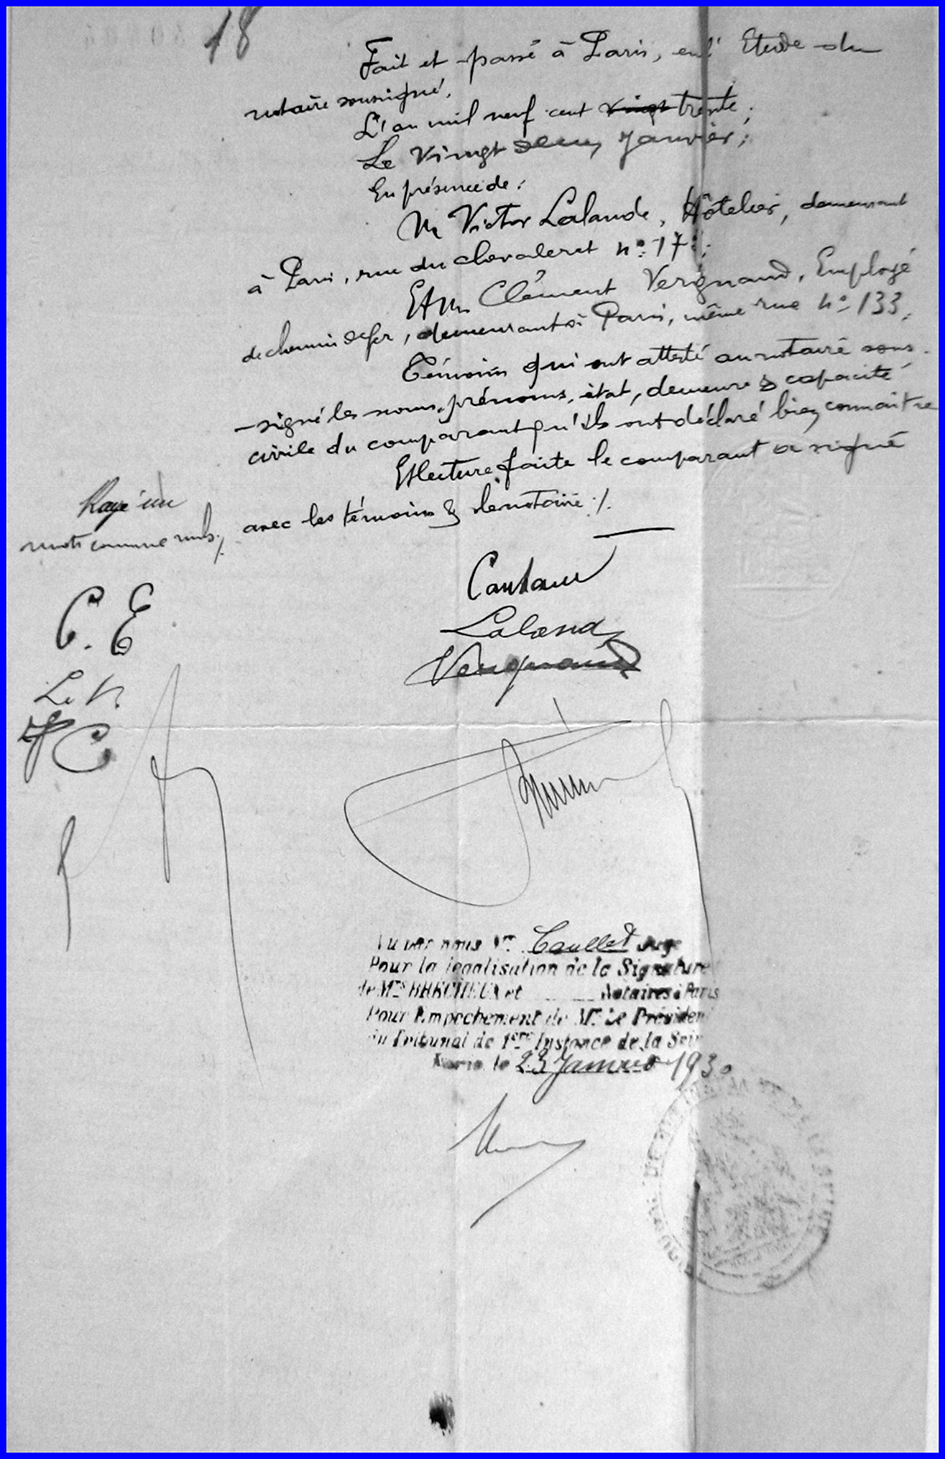 18
Fait et passé à Paris, en l'Etude du
notaire soussigné,
L'an mil neuf cent vingt trente,
Le Vingt deux Janvier;
En présence de:
M Victor Lalande, Hôtelier, demeurant
à Paris, rue du Chevaleret n° 17
Et M. Clément Vergnaud, Employé
de chemin de fer, demeurant à Paris, même rue n° 133,
Témoins qui ont attesté au notaire sous-
-signé les noms, prénoms, état, demeure & capacité
civile du comparant qu'ils ont déclaré bien connaître
Et lecture faite le comparant a signé
avec les témoins & le notaire ./.
Rayé un
mots comme nuls ./.
C. E
L. V.
C
Laland
Vergnaud
Vu par nous Mr. Caullet Juge
Pour la légalisation de la Signature
de Mtes BRECHEUX et Notaires à Paris
Pour Empechement de Mr. Le Président
du Tribunal de 1ere Instance de la Seine
Paris le 23 Janvier 1930